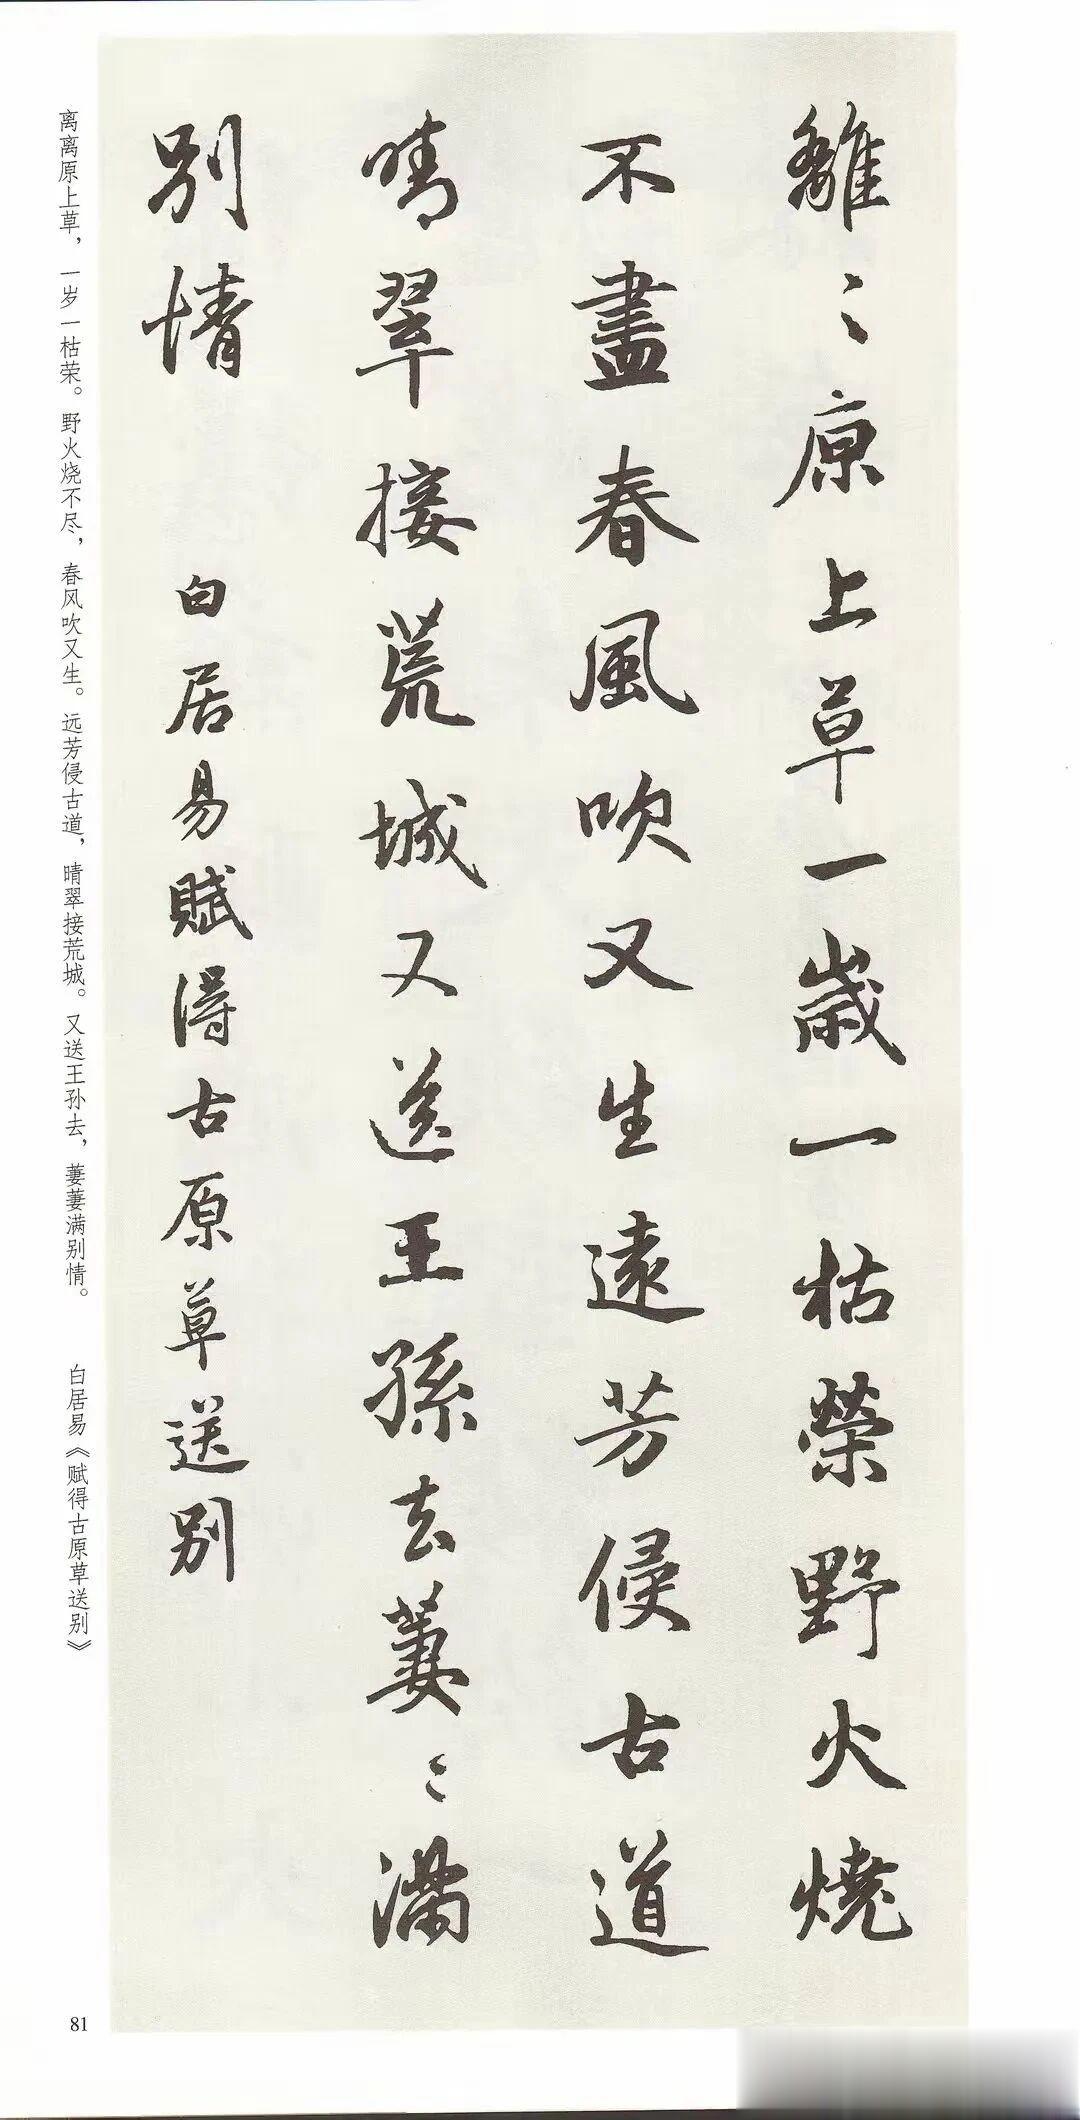 離〻原上草一歲一枯榮野火燒
不盡春風吹又生遠芳侵古道
晴翠接荒城又送王孫去萋〻滿
別情
白居易賦得古原草送別
离离原上草，一岁一枯荣。野火烧不尽，春风吹又生。远芳侵古道，晴翠接荒城。又送王孙去，萋萋满别情。
白居易《赋得古原草送别》
81